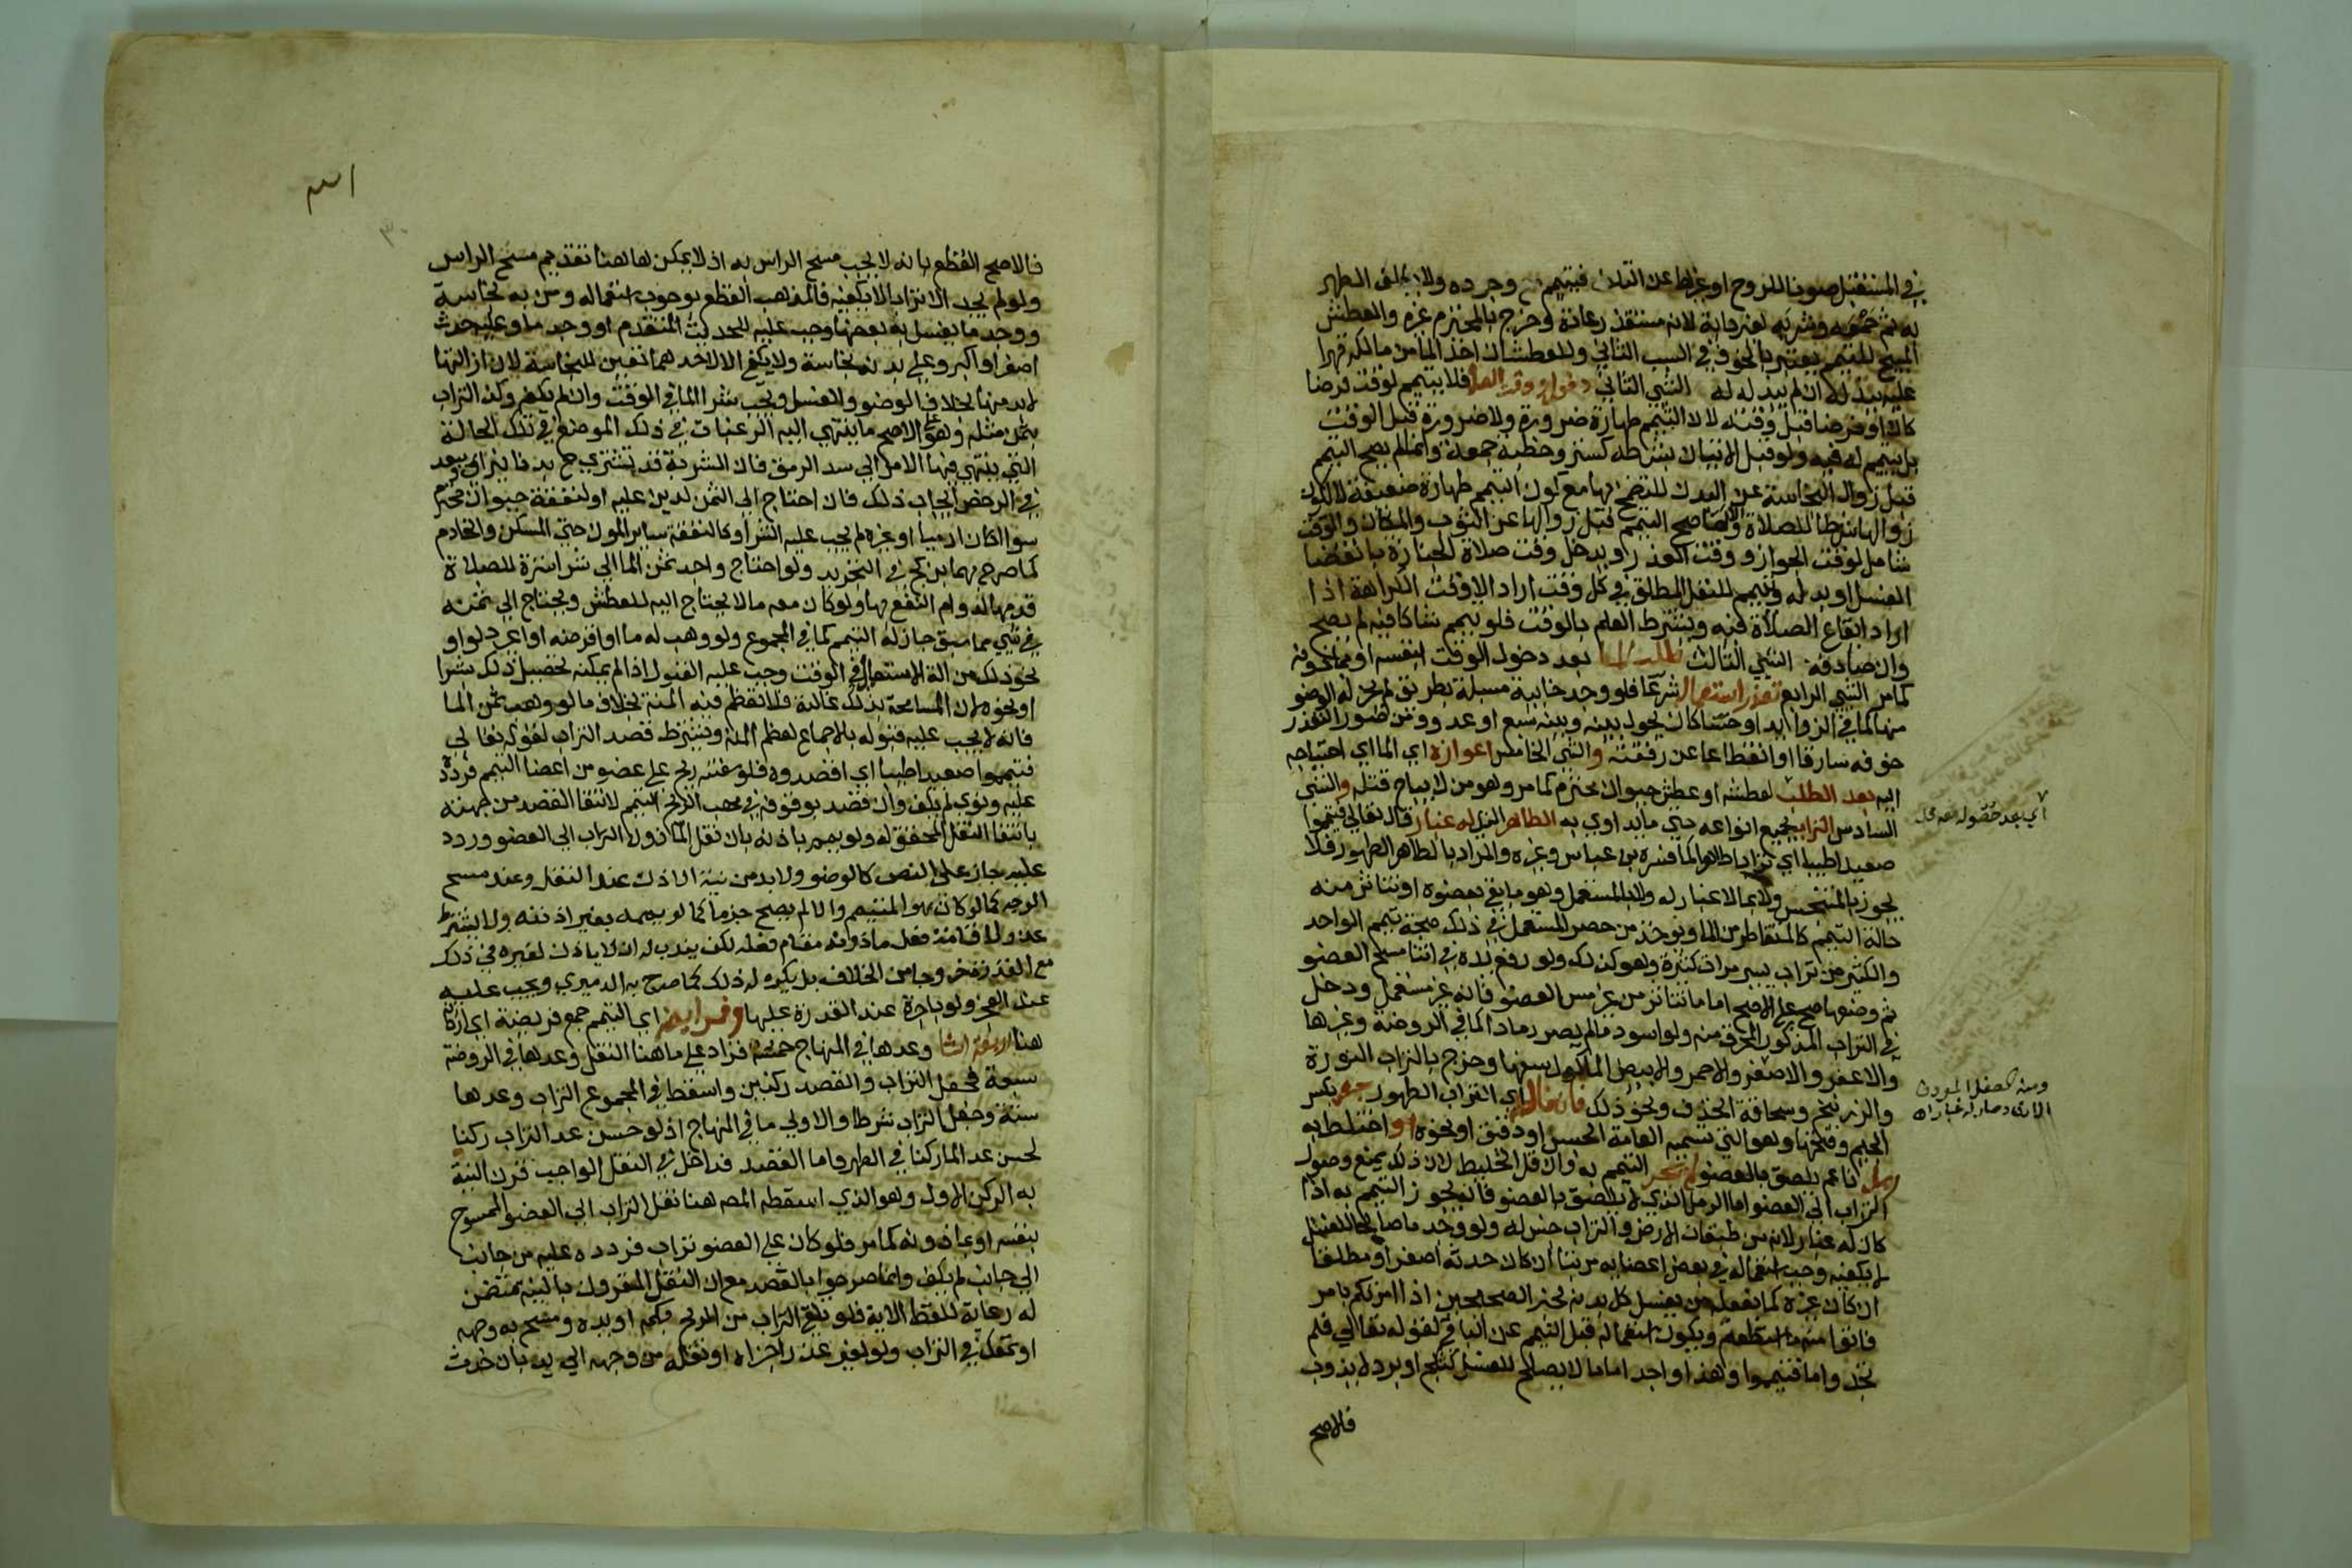 في المستقبل صونا للروح او غيرها عن التلف فيتيمم مع وجوده ولا يكلف الطهر
به ثم جمعه وشربه لغير دابة لانه مستقذر عادة وخرج بالمحترم غيره والعطش
المبيح للتيمم يعتبر بالخوف في السبب الثاني وللعطشان اخذ الما من مالكه قهرا
عليه ببذله ان لم يبذله له الشي الثاني دخول وقت الصلاة فلا يتيمم لوقت فرضا
كان او فرضا قبل وقته لان التيمم طهارة ضرورة ولا ضرورة قبل الوقت
بل يتيمم له فيه ولو قبل الاتيان بشرطه كستر وخطبة جمعة وانما لم يصح التيمم
قبل زوال النجاسة عن البدن للتضمخ بها مع كون التيمم طهارة ضعيفة لا لكون
زوالها شرطا للصلاة والا لما صح التيمم قبل زوالها عن الثوب والمكان والوقت
شامل لوقت الجواز ووقت العذر ويدخل وقت صلاة الجنازة بانقضا
الغسل او بدله ويتيمم للنفل المطلق في كل وقت اراد الا وقت الكراهة اذا
اراد ايقاع الصلاة فيه ويشترط العلم بالوقت فلو تيمم شاكا فيه لم يصح
وان صادفه الشي الثالث طلب الما بعد دخول الوقت بنفسه او بماذونه
كما مر الشي الرابع تعذر استعماله شرعا فلو وجد خابية مسبلة بطريق لم يجز له الوضو
منها كما في الزوايد او حسا كان يحول بينه وبينه سبع او عدو ومن صور التعذر
خوفه سارقا او انقطاعا عن رفقته والشي الخامس اعوازه اي الما اي احتياجه
اليه بعد الطلب لعطشه او عطش حيوان محترم كما مر وهو من لا يباح قتله والشي
السادس التراب بجميع انواعه حتي ما يداوي به الطاهر الذي له غبار قال تعالي فتيمموا
صعيدا طيبا اي ترابا طاهرا كما فسره بن عباس وغيره والمراد بالطاهر الطهور فلا
يجوز بالمتنجس ولا بما لا غبار له ولا بالمستعمل وهو ما بقي بعضوه او تناثر منه
حالة التيمم كالمتقاطر من الما ويوخذ من حصر المستعمل في ذلك صحة تيمم الواحد
والكثير من تراب يسير مرات كثيرة وهو كذلك ولو رفع يده في اثنا مسح العضو
ثم وضعها صح علي الاصح اما ما تناثر من غير مس العضو فانه غير مستعمل ودخل
في التراب المذكور المحرق منه ولو اسود ما لم يصر رمادا كما في الروضة وغيرها
والاعفر والاصفر والاحمر والابيض الماكول سفها وخرج بالتراب النورة
والزرنيخ وسحاقة الخذف ونحو ذلك فان خالطه اي التراب الطهور جص بكسر
الجيم وفتحها وهو التي تسميه العامة الجبس او دقيق او نحوه او اختلط به
رمل ناعم يلصق بالعضو لم يجز التيمم به وان قل الخليط لان ذلك يمنع وصول
التراب الي العضو اما الرمل الذي لا يلصق بالعضو فانه يجوز التيمم به اذا
كان له غبار لانه من طبقات الارض والتراب جنس له ولو وجد ما صالحا للغسل
لا يكفيه وجب استعماله في بعض اعضايه مرتبا ان كان حدثه اصغر او مطلقا
ان كان غيره كما يفعله من يغسل كل بدنه لخبر الصحيحين اذا امرتكم بامر
فاتوا منه ما استطعتم ويكون استعماله قبل التيمم عن الباقي لقوله تعالي فلم
تجدوا ما فتيمموا وهذا واجد اما ما لا يصلح للغسل كثلج او برد لا يذوب
فالاصح
اي بعد حصوله معه محل
ومنه الطفل المورث
فالاصح القطع بانه لا يجب مسح الراس به اذ لا يمكن هاهنا تقديم مسح الراس
ولو لم يجد الا ترابا لا يكفيه فالمذهب القطع بوجوب استعماله ومن به نجاسة
ووجد ما يغسل به بعضها وجب عليه للحديث المتقدم او وجد ما وعليه حدث
اصغر او اكبر وعلي بدنه نجاسة ولا يكفي الا لاحدهما تعين للنجاسة لان ازالتها
لا بد منها بخلاف الوضو والغسل ويجب شرا الما في الوقت وان لم يكفه وكذا التراب
بثمن مثله وهو علي الاصح ما ينتهي اليه الرغبات في ذلك الموضع في تلك الحالة
التي ينتهي فيها الامر الي سد الرمق فان الشربة قد تشتري ح بدنانير اي ويبعد
في الرخص ايجاب ذلك فان احتاج الي الثمن لدين عليه او لنفقة حيوان محترم
سوا اكان ادميا او غيره لم يجب عليه الشرا وكالنفقة ساير المون حتي المسكن والخادم
كما صرح بهما بن كج في التجريد ولو احتاج واجد ثمن الما الي شرا سترة للصلاة
قدمها لدوام النفع بها ولو كان معه ما لا يحتاج اليه للعطش ويحتاج الي ثمنه
في شي مما سبق جاز له التيمم كما في المجموع ولو وهب له ما او اقرضه او اعير دلوا او
نحو ذلك من الة الاستعمال في الوقت وجب عليه القبول اذا لم يمكنه تحصيل ذلك بشرا
او نحوه لان المسامحة بذلك غالبة فلا تعظم فيه المنة بخلاف ما لو وهب ثمن الما
فانه لا يجب عليه قبوله بالاجماع لعظم المنة ويشترط قصد التراب لقوله تعالي
فتيمموا صعيدا طيبا اي اقصدوه فلو سفته ريح علي عضو من اعضا التيمم فردده
عليه ونوي لم يكف وان قصد بوقوفه في مهب الريح التيمم لانتفا القصد من جهته
بانتفا النقل المحقق له ولو يمم باذنه بان نقل الماذون التراب الي العضو وردد
عليه جاز علي النص كالوضو ولا بد من نية الاذن عند النقل وعند مسح
الوجه كما لو كان هو المتيمم والا لم يصح جزما كما لو يممه بغير اذنه ولا يشترط
عذر لاقامة فعل ماذونه مقام فعله لكن يندب له ان لا ياذن لغيره في ذلك
مع القدرة خروجا من الخلاف بل يكره له ذلك كما صرح به الدميري ويجب عليه
عند العجز ولو باجرة عند القدرة عليها وفرايضه اي التيمم جمع فريضة اي اركانه
هنا اربعة اشيا وعدها في المنهاج خمسة فزاد علي ما هنا النقل وعدها في الروضة
سبعة فجعل التراب والقصد ركنين واسقط في المجموع التراب وعدها
ستة وجعل التراب شرطا والاولي ما في المنهاج اذ لو حسن عد التراب ركنا
لحسن عد الما ركنا في الطهر واما القصد فداخل في النقل الواجب قرن النية
به الركن الاول وهو الذي اسقطه المص هنا نقل التراب الي العضو الممسوح
بنفسه او بماذونه كما مر فلو كان علي العضو تراب فردده عليه من جانب
الي جانب لم يكف وانما صرحوا بالقصد مع ان النقل المقرون بالنية متضمن
له رعاية للفظ الاية فلو تلقي التراب من الريح بكمه او يده ومسح به وجهه
او تمعك في التراب ولو لغير عذر اجزاه او نقله من وجهه الي يد بان حدث
٣٠